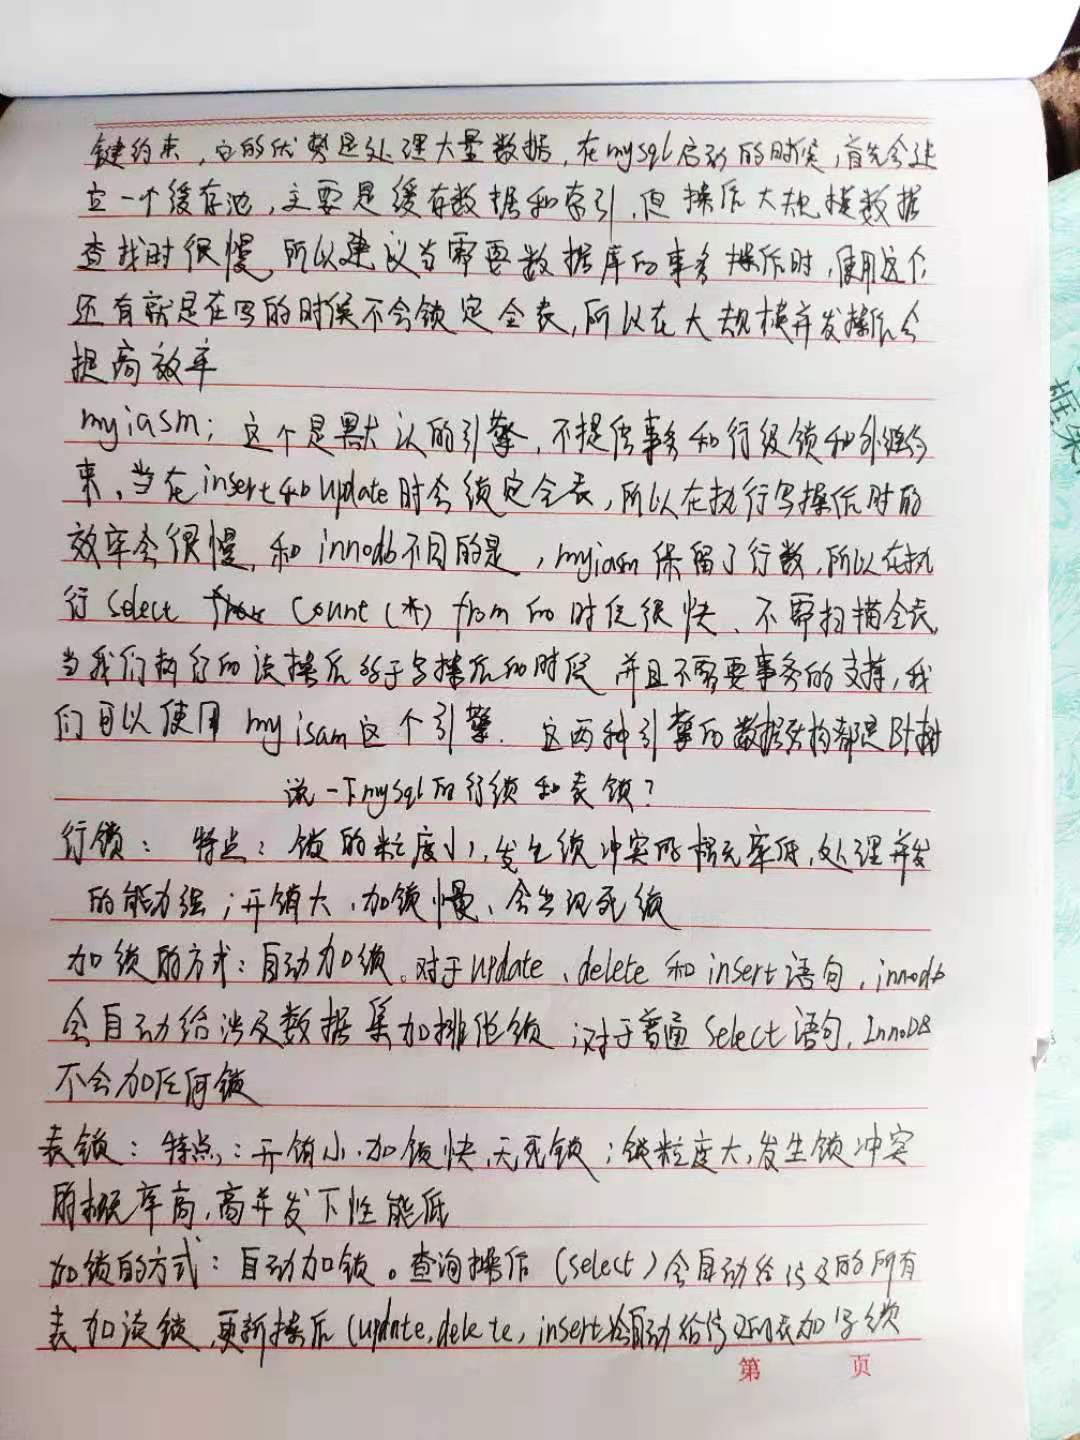 键约束，它的优势是处理大量数据，在mysql启动的时候，首先会建
立一个缓存池，主要是缓存数据和索引，但操作大规模数据
查找时很慢，所以建议当需要数据库的事务操作时，使用这个
还有就是在写的时候不会锁定全表，所以在大规模并发操作会
提高效率
myiasm；这个是默认的引擎，不提供事务和行级锁和外键约
束，当在insert和update时会锁定全表，所以在执行写操作时的
效率会很慢，和innodb不同的是，myiasm保留了行数，所以在执
行select count(*) from 的时候很快、不需扫描全表，
当我们执行的读操作多于写操作的时候 并且不需要事务的支持，我
们可以使用 myisam这个引擎. 这两种引擎的数据结构都是B+树
说一下mysql的行锁和表锁？
行锁： 特点：锁的粒度小，发生锁冲突的概率低，处理并发
的能力强；开销大、加锁慢、会出现死锁
加锁的方式：自动加锁。对于update、delete和insert语句，innodb
会自动给涉及数据集加排他锁；对于普通Select语句，InnoDB
不会加任何锁
表锁：特点：开销小、加锁快，无死锁；锁粒度大，发生锁冲突
的概率高，高并发下性能低
加锁的方式：自动加锁。查询操作（select）会自动给涉及的所有
表加读锁，更新操作（update,delete，insert）会自动给涉及的表加写锁
第 页
框架